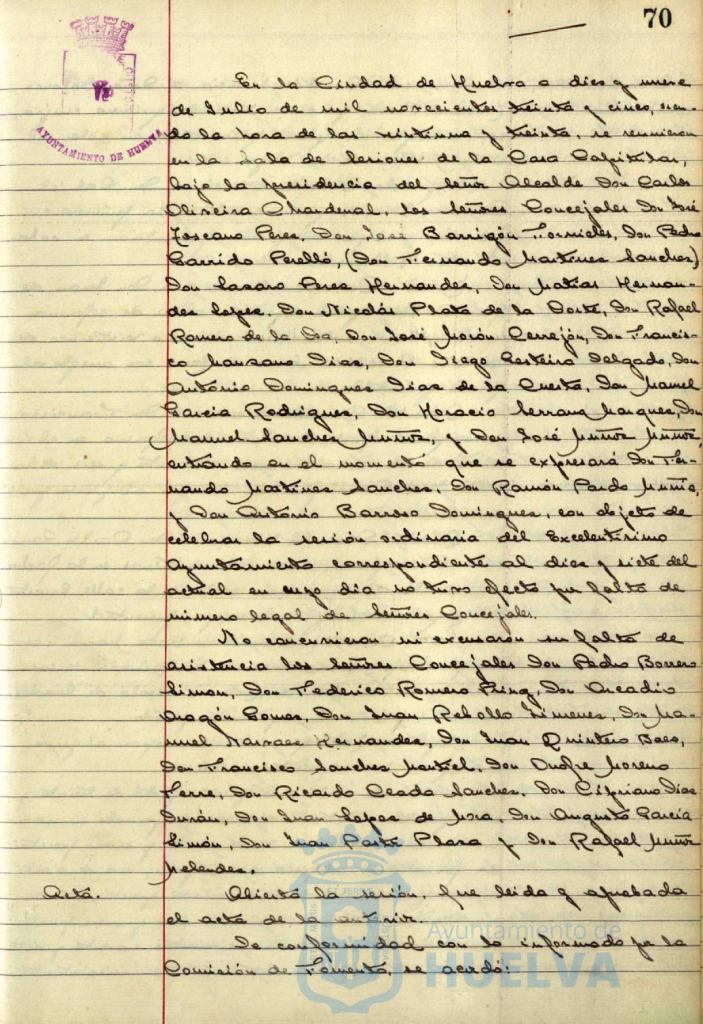 70
AYUNTAMIENTO DE HUELVA
En la Ciudad de Huelva a diez y nueve
de Julio de mil novecientos treinta y cinco, sien-
do la hora de las veintiuna y treinta, se reunieron
en la Sala de Sesiones de la Casa Capitular,
bajo la presidencia del Señor Alcalde Don Carlos
Oliveira Chardenal, los Señores Concejales Don José
Toscano Perez, Don José Barrigón Fornieles, Don Pedro
Garrido Perelló, (Don Fernando Martinez Sanchez)
Don Lazaro Perez Hernandez, Don Matias Hernan-
dez Lopez, Don Nicolás Plata de la Corte, Don Rafael
Romero de la Osa, Don José Morón Cerrejón, Don Francis-
co Manzano Dias, Don Diego Lesteiro Delgado, Don
Antonio Dominguez Diaz de la Cuesta, Don Manuel
Garcia Rodriguez, Don Horacio Serrano Marquez, Don
Manuel Sanchez Muñoz, y Don José Muñoz Muñoz,
entrando en el momento que se expresará Don Fer-
nando Martinez Sanchez, Don Ramón Pardo Muñiz,
y Don Antonio Barroso Dominguez, con objeto de
celebrar la sesión ordinaria del Excelentísimo
Ayuntamiento correspondiente al diez y siete del
actual en cuyo dia no tuvo efecto por falta de
número legal de Señores Concejales.
No concurrieron ni excusaron su falta de
asistencia los Señores Concejales Don Pedro Borrero
Limon, Don Federico Romero Pring, Don Arcadio
Aragón Gomez, Don Juan Rebollo Jimenez, Don Ma-
nuel Narvaez Hernandez, Don Juan Quintero Baez,
Don Francisco Sanchez Montiel, Don Onofre Moreno
Ferre, Don Ricardo Ceada Sanchez, Don Cipriano Dias
Durán, Don Juan Lopez de Mora, Don Augusto Garcia
Simón, Don Juan Pastor Plaza y Don Rafael Muñoz
Melendez.
Acta. Abierta la sesión, fue leida y aprobada
el acta de la anterior.
De conformidad con lo informado por la
Comisión de Fomento, se acordó:
Ayuntamiento de
HUELVA